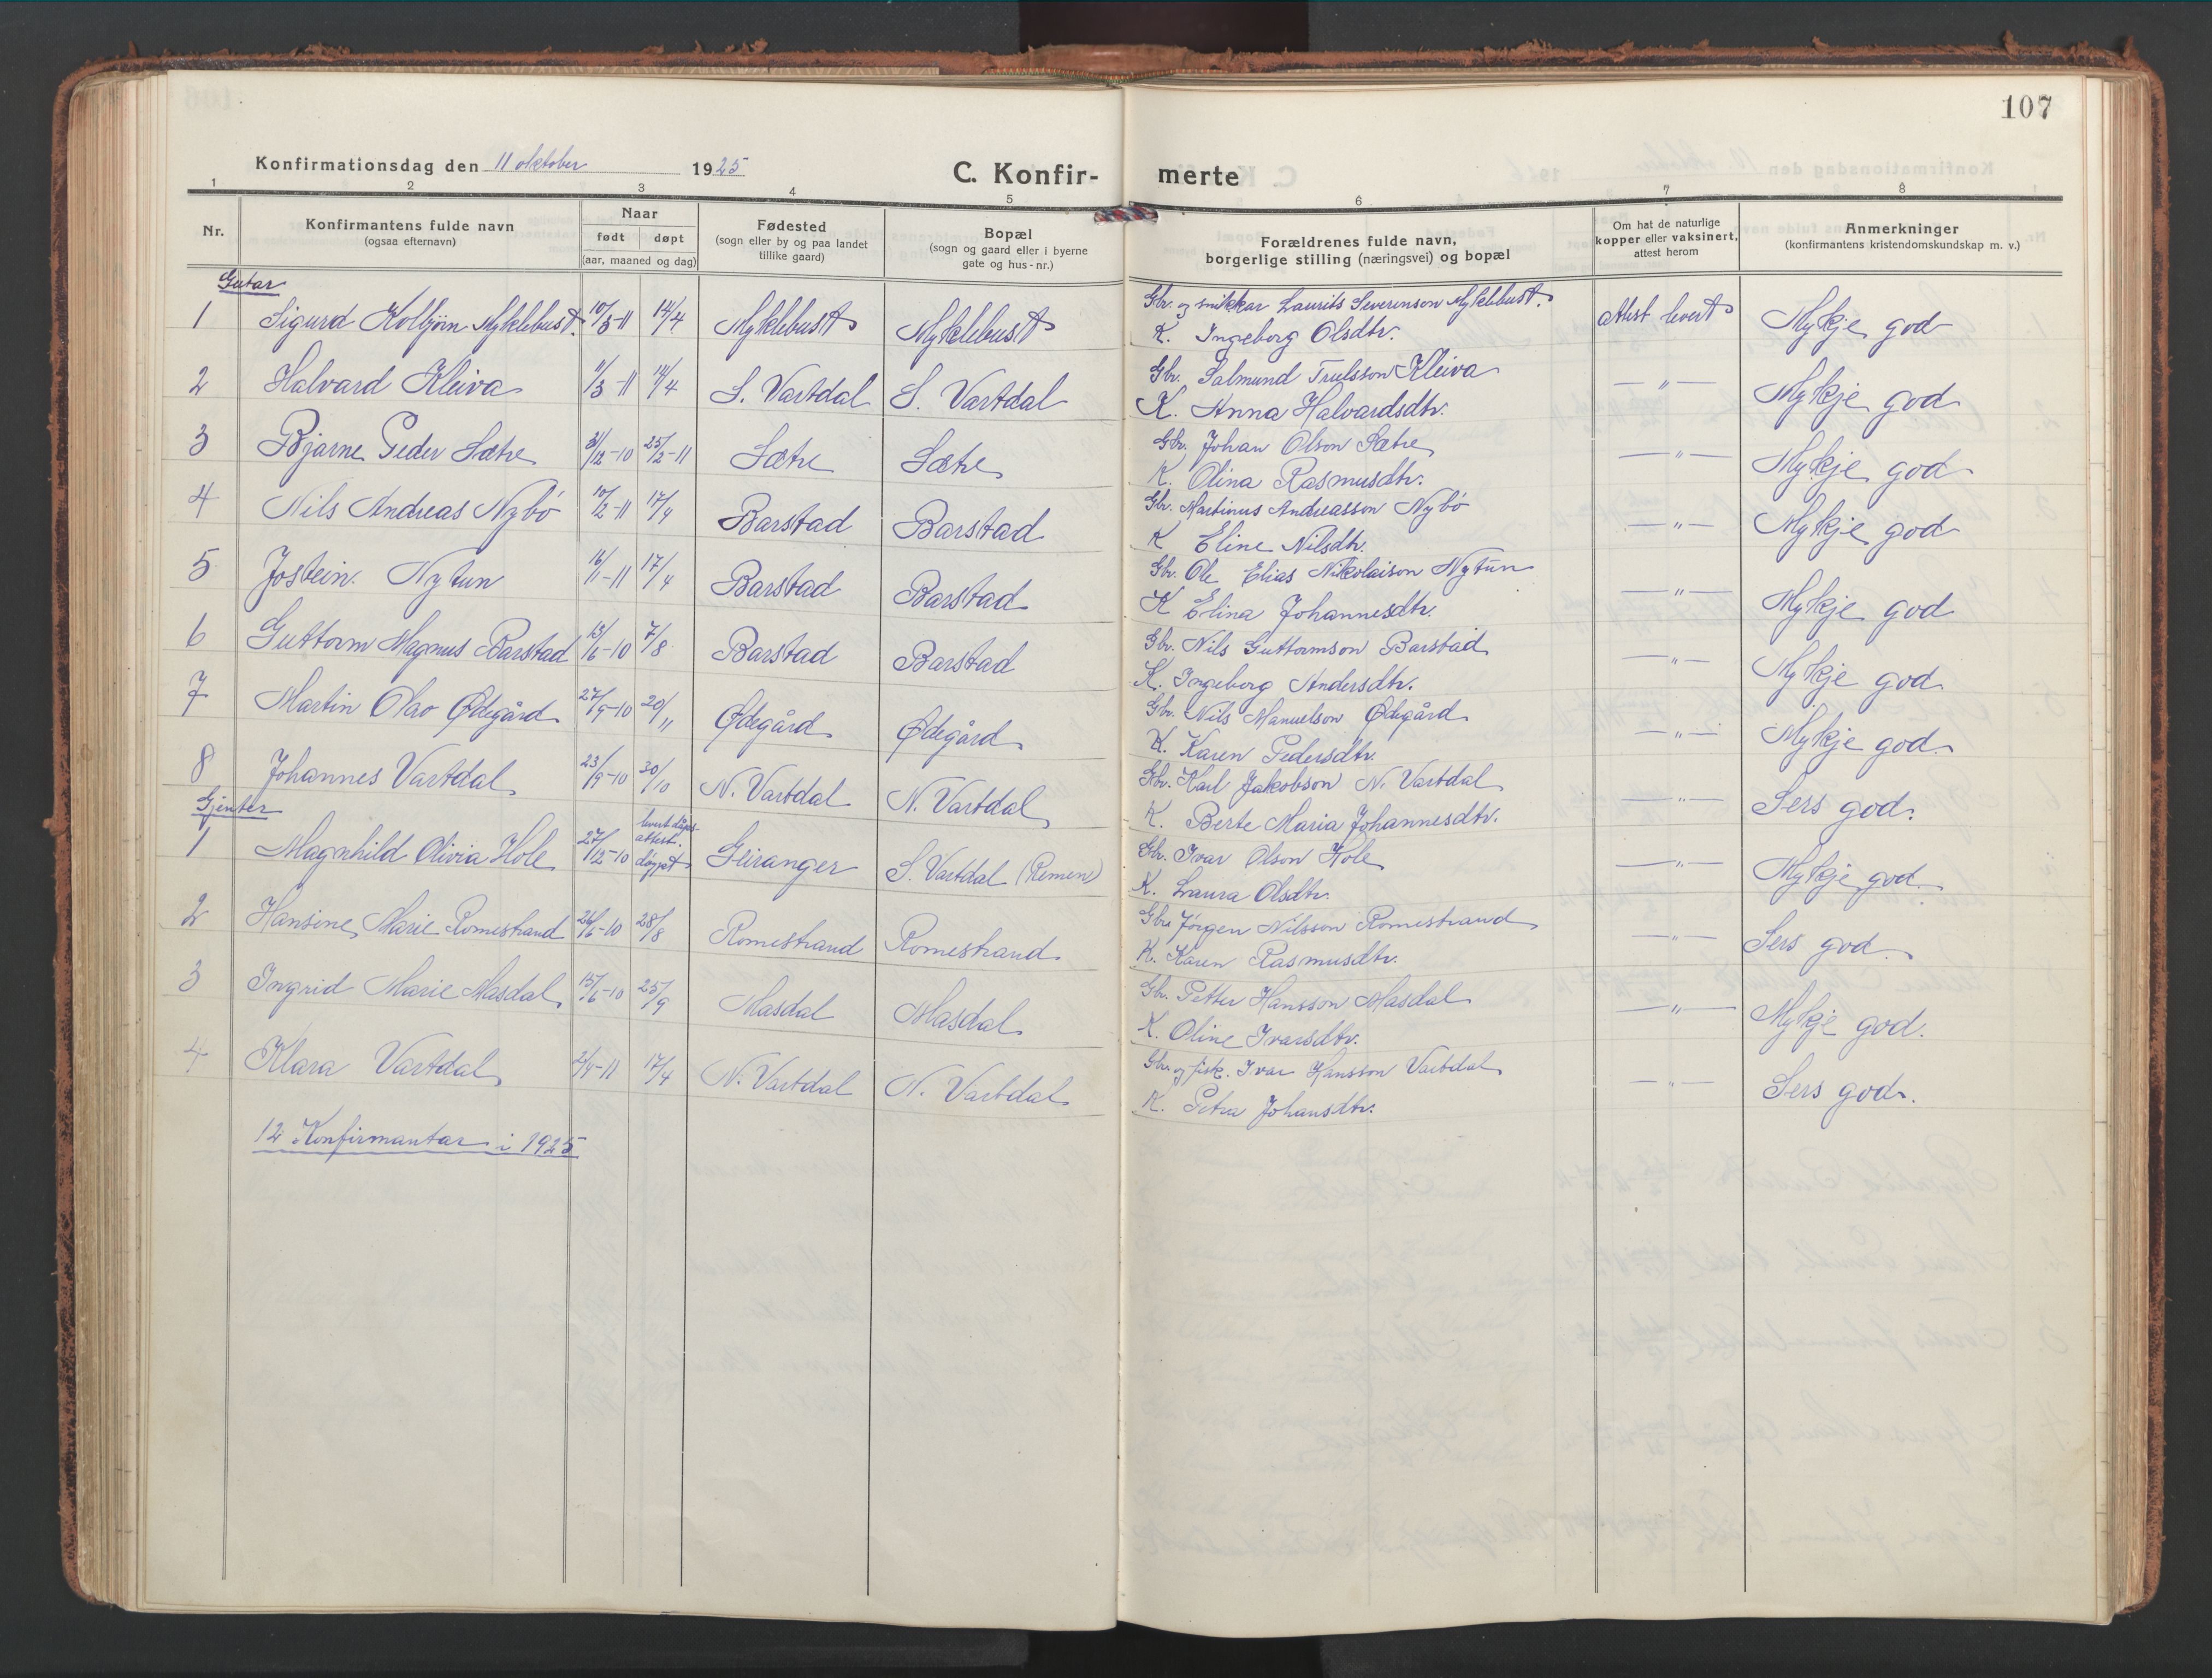 107
Konfirmationsdag den 11 oktober 1925 C. Konfir- merte
1 2 3 4 5 6 7 8
Nr. Konfirmantens fulde navn (ogsaa efternavn) Naar født døpt (aar, maaned og dag) Fødested (sogn eller by og paa landet tillike gaard) Bopæl (sogn og gaard eller i byerne gate og hus-nr.) Forældrenes fulde navn, borgerlige stilling (næringsvei) og bopæl Om hat de naturlige kopper eller vaksinert, attest herom Anmerkninger (konfirmantens kristendomskundskap m. v.)
Gutar
1 Sigurd Kolbjørn Myklebust 10/3-11 14/4 Myklebust Myklebust Gbr. og snikkar Laurits Severinson Myklebust. Attest levert Mykje god
K. Ingeborg Olsdtr.
2 Halvard Kleiva 11/3-11 14/4 S. Vartdal S. Vartdal Gbr. Salmund Trulsson Kleiva —"— Mykje god
K. Anna Halvardsdtr.
3 Bjarne Peder Sætre 31/12-10 25/2-11 Sætre Sætre Gbr. Johan Olson Sætre —"— Mykje god
K. Olina Rasmusdtr.
4 Nils Andreas Nybø 10/2-11 17/4 Barstad Barstad Gbr. Martinus Andreasson Nybø —"— Mykje god
K Eline Nilsdtr.
5 Jostein Nytun 16/1-11 17/4 Barstad Barstad Gbr. Ole Elias Nikolaison Nytun —"— Mykje god
K Elina Johannesdtr.
6 Guttorm Magnus Barstad 13/6-10 7/8 Barstad Barstad Gbr. Nils Guttormson Barstad —"— Mykje god
K. Ingeborg Andersdtr.
7 Martin Olav Ødegård 27/9-10 20/11 Ødegård Ødegård Gbr. Nils Manuelson Ødegård —"— Mykje god.
K. Karen Pedersdtr.
8 Johannes Vartdal 23/9-10 30/10 N. Vartdal N. Vartdal Gbr. Karl Jakobson N. Vartdal —"— Sers god.
K. Berte Maria Johannesdtr.
Gjentor
1 Magnhild Olivia Hole 27/12-10 levert dåps-attest. døypt Geiranger S. Vartdal (Remen) Gbr. Ivar Olson Hole —"— Mykje god.
K. Laura Olsdtr.
2 Hansine Marie Romestrand 26/6-10 28/8 Romestrand Romestrand Gbr. Jørgen Nilsson Romestrand —"— Sers god.
K. Karen Rasmusdtr.
3 Ingrid Marie Masdal 15/6-10 25/9 Masdal Masdal Gbr. Petter Hansson Masdal —"— Mykje god.
K. Oline Ivarsdtr.
4 Klara Vartdal 2/4-11 17/4 N. Vartdal N. Vartdal Gbr. og fisk. Ivar Hansson Vartdal —"— Sers god.
K. Petra Johansdtr.
12 Konfirmantar i 1925